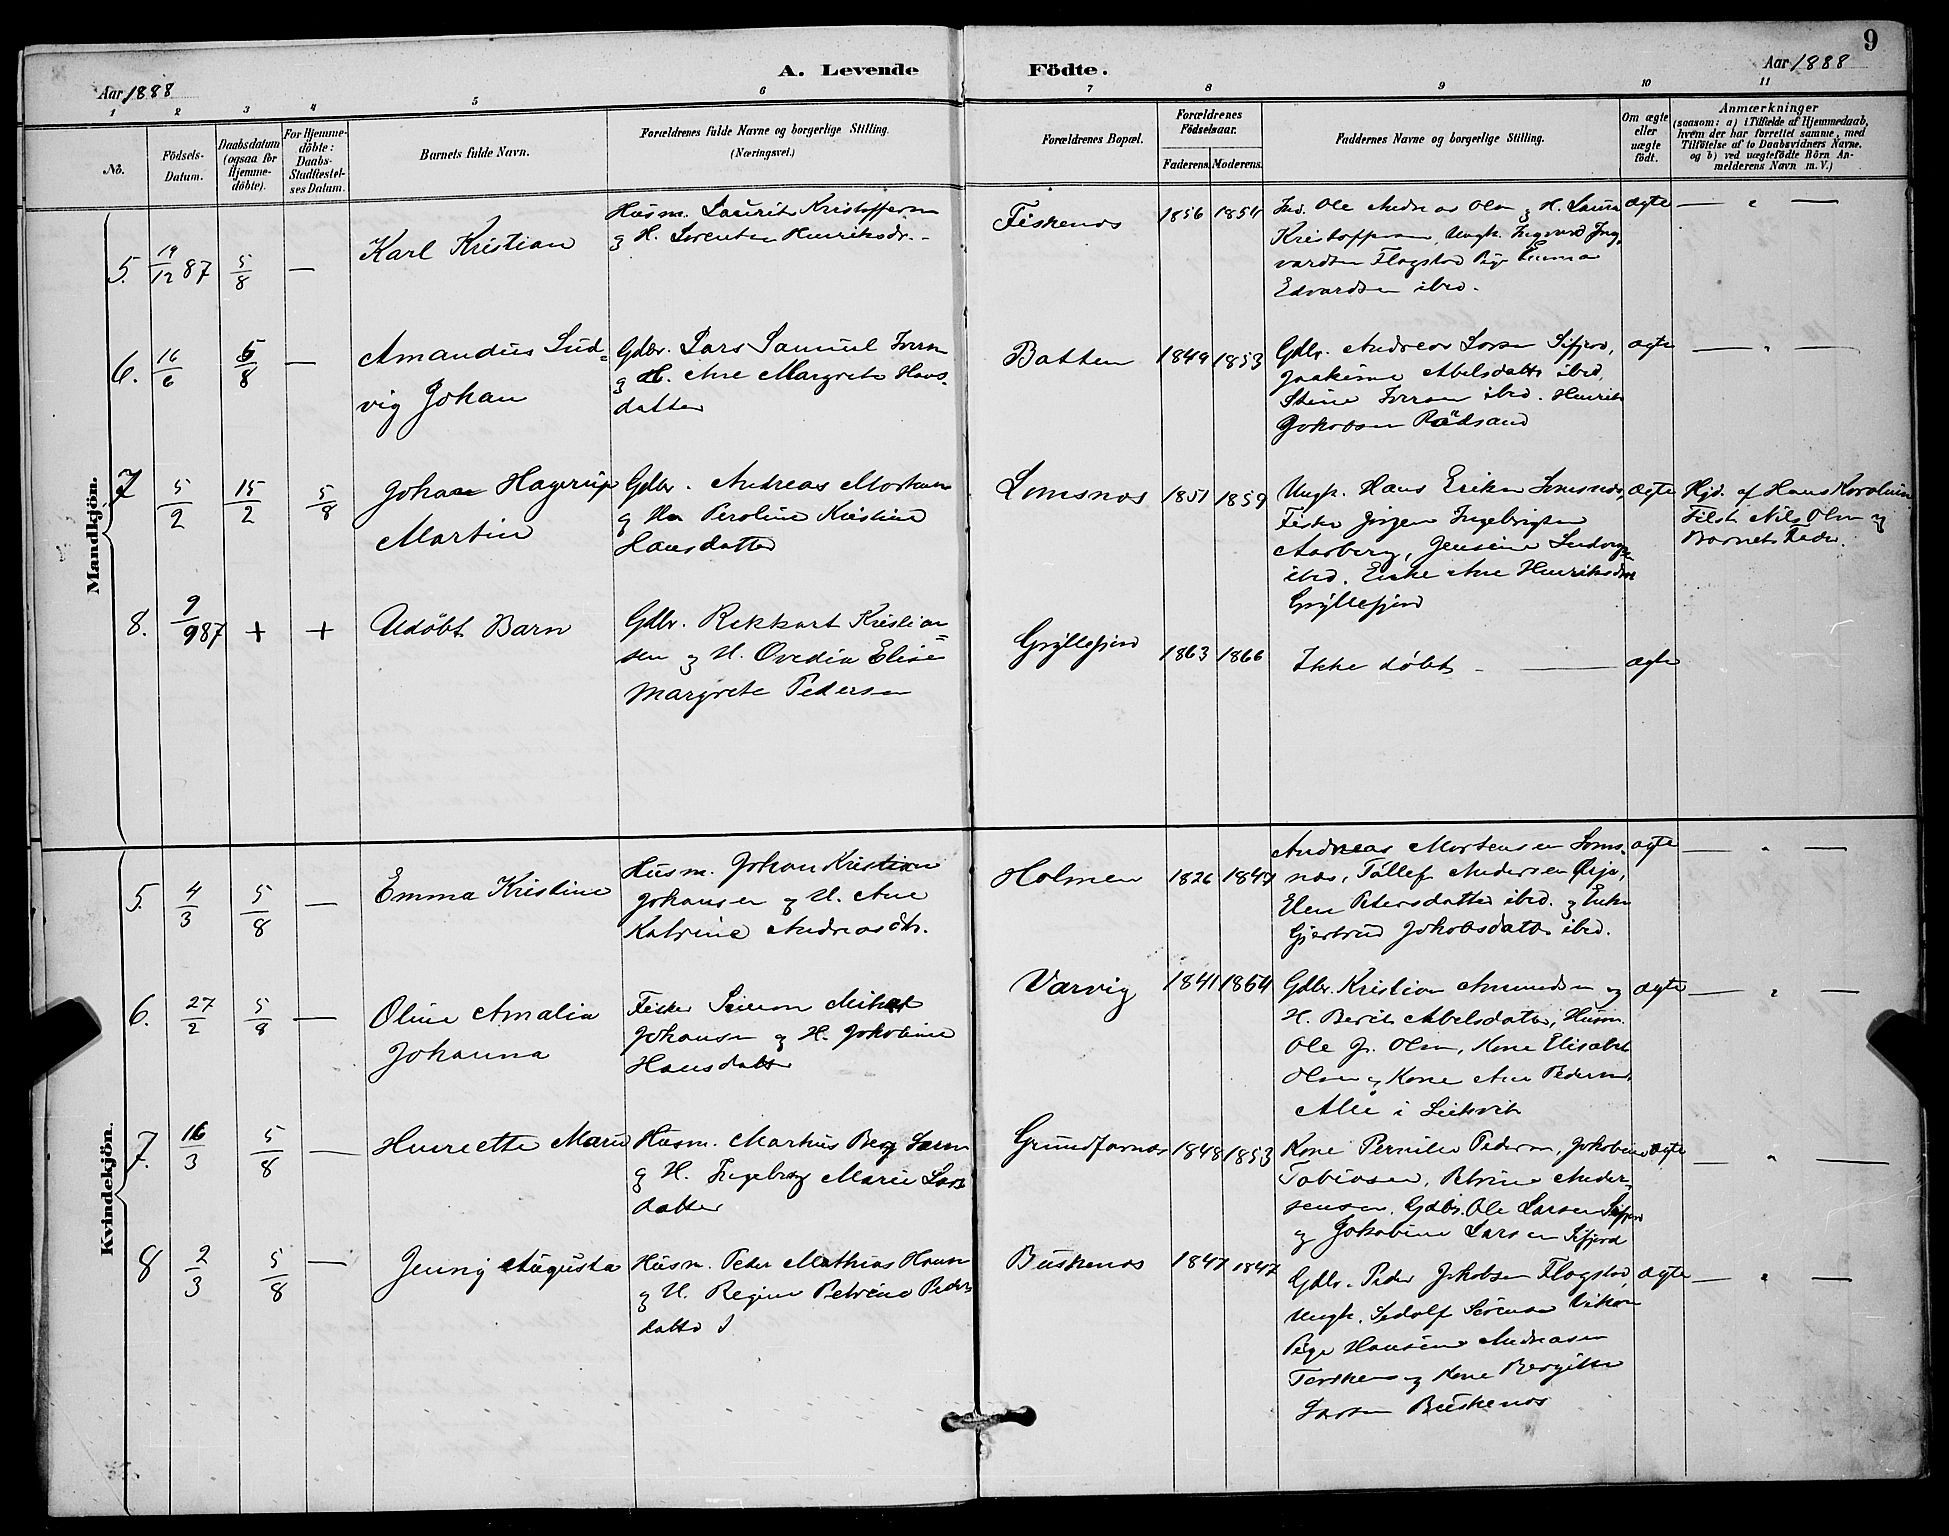 9
A. Levende Födte.
Aar 1888
Aar 1888
1 2 3 4 5 6 7 8 9 10 11
No.
Födsels-
Datum.
Daabsdatum
(ogsaa for
Hjemme-
döbte).
For Hjemme-
döbte:
Daabs-
Stadfæstel-
ses Datum.
Barnets fulde Navn.
Forældrenes fulde Navne og borgerlige Stilling.
(Næringsvei.)
Forældrenes Bopæl.
Forældrenes
Födselsaar.
Faderens. Moderens.
Faddernes Navne og borgerlige Stilling.
Om ægte
eller
uægte
födt.
Anmærkninger
(saasom: a) i Tilfælde af Hjemmedaab,
hvem der har forrettet samme, med
Tilföielse af to Daabsvidners Navne.
og b) ved uægtefödte Börn An-
melderens Navn m. V.)
Mandkjön.
5. 19/12 87 5/8 —
Karl Kristian
Husm. Laurits Kristoffersen
og H. Lorentse Henriksdr.
Fiskenes 1856 1854
Ind. Ole Andreas Olsen og H. Laura
Kristoffersen, Ungk. Ingvard Ing-
vardsen Flagstad Pige Emma
Edvardsen ibid.
ægte — " —
6. 16/6 5/8 —
Amandus Lud=
vig Johan
Gdbr. Lars Samuel Iversen
og H. Ane Margrete Hans-
datter
Batten 1849 1853
Gdbr. Andreas Larsen Sifjord,
Joakime Abelsdatter ibid.
Stine Iversen ibid. Henrik
Jakobsen Rödsand
ægte — " —
7 5/2 15/2 5/8
Johan Hagerup
Martin
Gdbr. Andreas Mortensen
og H. Peroline Kristine
Hansdatter
Lomsnes 1851 1859
Ungk. Hans Eriksen Lomsnes,
Fisker Jörgen Ingebrigtsen
Aarberg, Jensine Ludvigsen
ibid. Enke Ane Henriksdatter
Gryllefjord
ægte
Hjd. af Hans Korolius
Nils Olsen og
Barnets Fader.
8. 9/9 87 + +
Udöbt Barn
Gdbr. Rikkart Kristian=
sen og H. Ovedia Elise
Margrete Pedersen
Gryllefjord 1863 1866
Ikke döbt — ægte
Kvindekjön.
5. 4/3 5/8 —
Emma Kristine
Husm. Johan Kristian
Johansen og H. Ane
Katrine Andreasdtr.
Holmen 1826 1847
Andreas Mortensen Loms-
nes, Töllef Andersen Örja,
Elen Petersdatter ibid. og Enke
Gjertrud Jakobsdatter ibid.
ægte — " —
6. 27/2 5/8 —
Oline Amalia
Johanna
Fisker Simon Mikal
Johansen og H. Jakobine
Hansdatter
Varvig 1841 1864
Gdbr. Kristian Amundsen og
H. Berit Abelsdatter, Husm.
Ole J. Olsen, Kone Elisabet
Olsen og Kone Ane Pedersen.
Alle i Leikvik
ægte — " —
7. 16/3 5/8 —
Henriette Marie
Husm. Martius Berg Larsen
og H. Ingeborg Marie Lars-
datter
Grundfarnes 1848 1853
Kone Pernille Pedersen, Jakobine
Tobiasen, Petrine Ander-
sensen. Gdbr. Ole Larsen Sifjord
og Jakobine Larsen Sifjord
ægte — " —
8 2/3 5/8 —
Jenny Augusta
Husm. Peder Mathias Hansen
og H. Regine Petrine Peders-
datter
Buskenes 1847 1847
Gdbr. Peder Jakobsen Flagstad,
Ungk. Sedolf Sörensen Viken
Pige Hansine Andreasen
Torsken og Kone Bergitte
Larsen Buskenes
ægte — " —